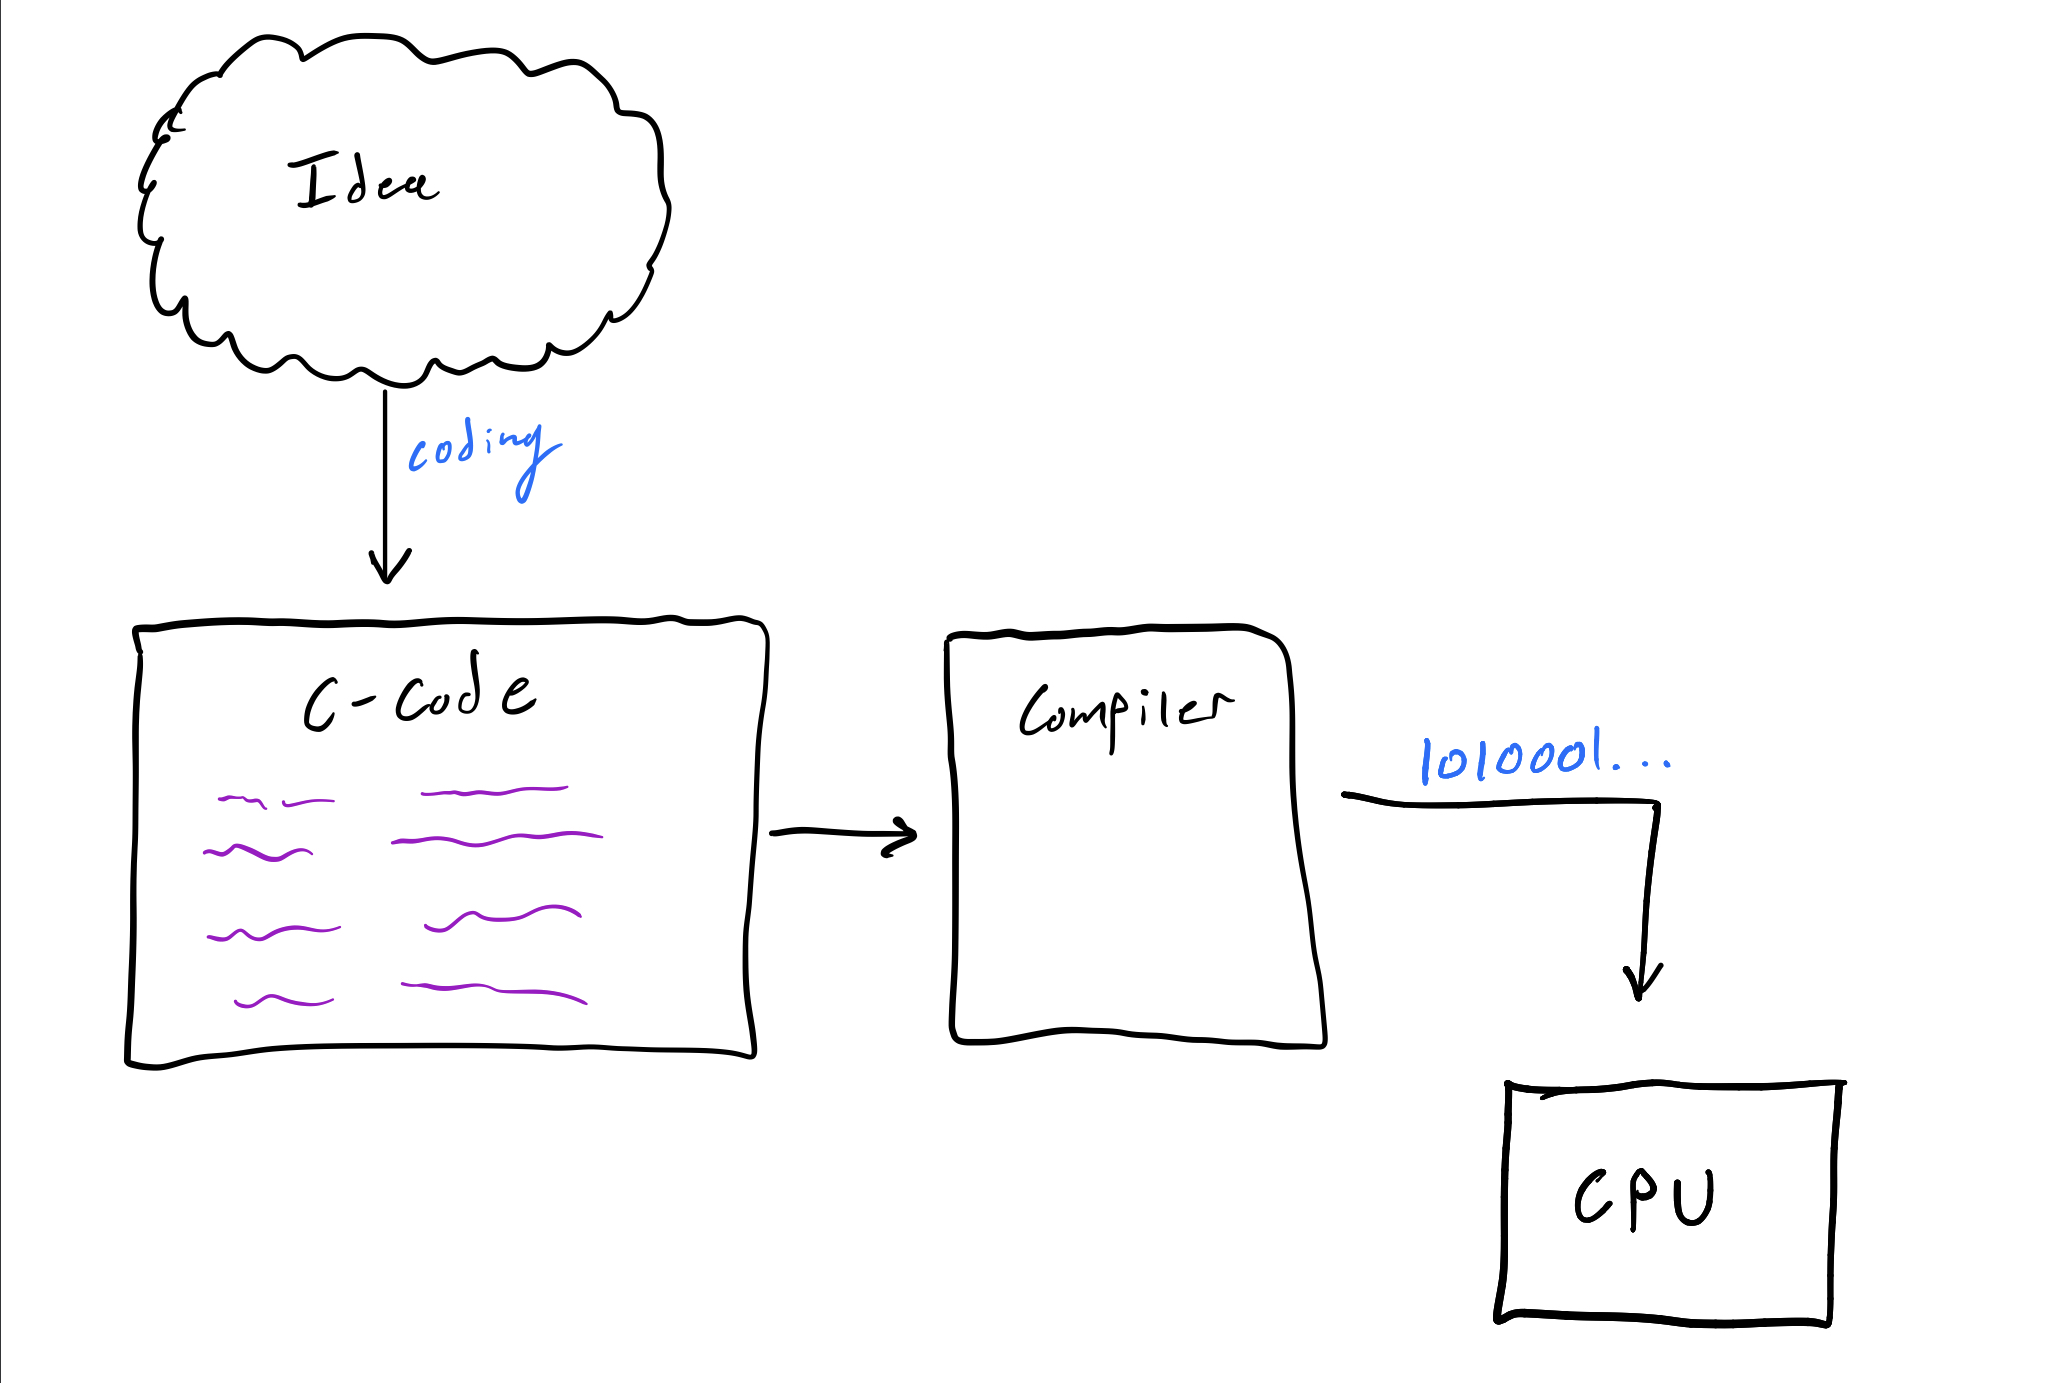 Idea
coding
C-Code
Compiler
1010001...
CPU